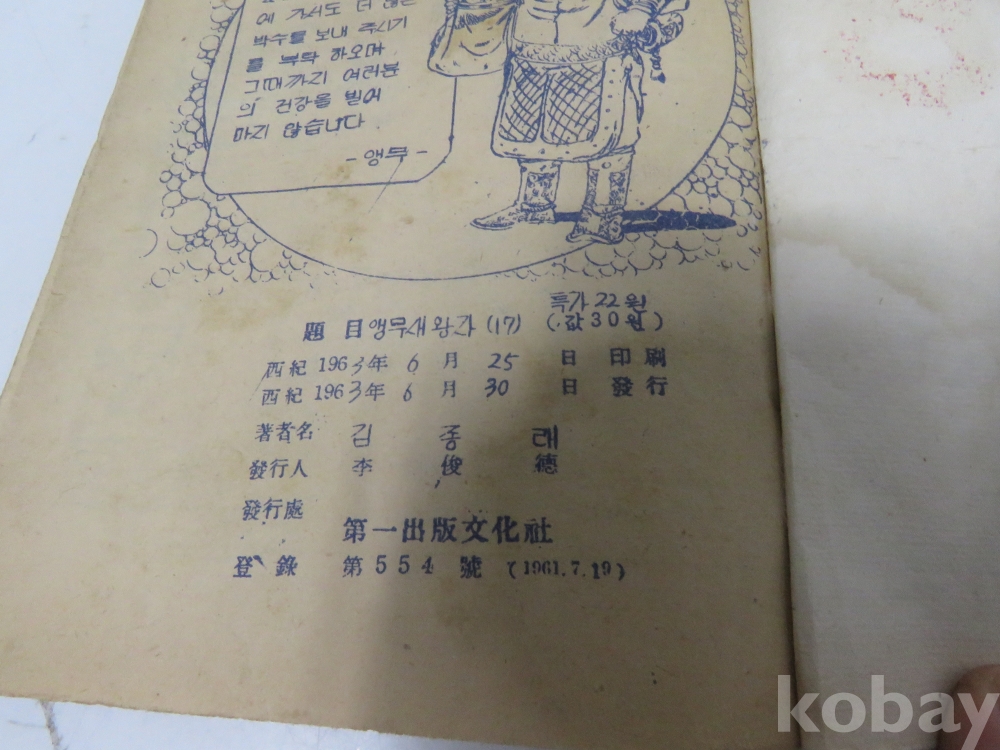 에 가서도 더 많은
박수를 보내 주시기
를 부탁 하오며
그때까지 여러분
의 건강을 빌어
마지 않습니다
-앵무-
특가 22원
題 目 앵무새왕자 (17) (값30원)
西紀 1963年 6 月 25 日 印刷
西紀 1963年 6 月 30 日 發行
著者名 김 종 래
發行人 李 俊 德
發行處
第一出版文化社
登錄 第554號 (1961.7.19)
kobay